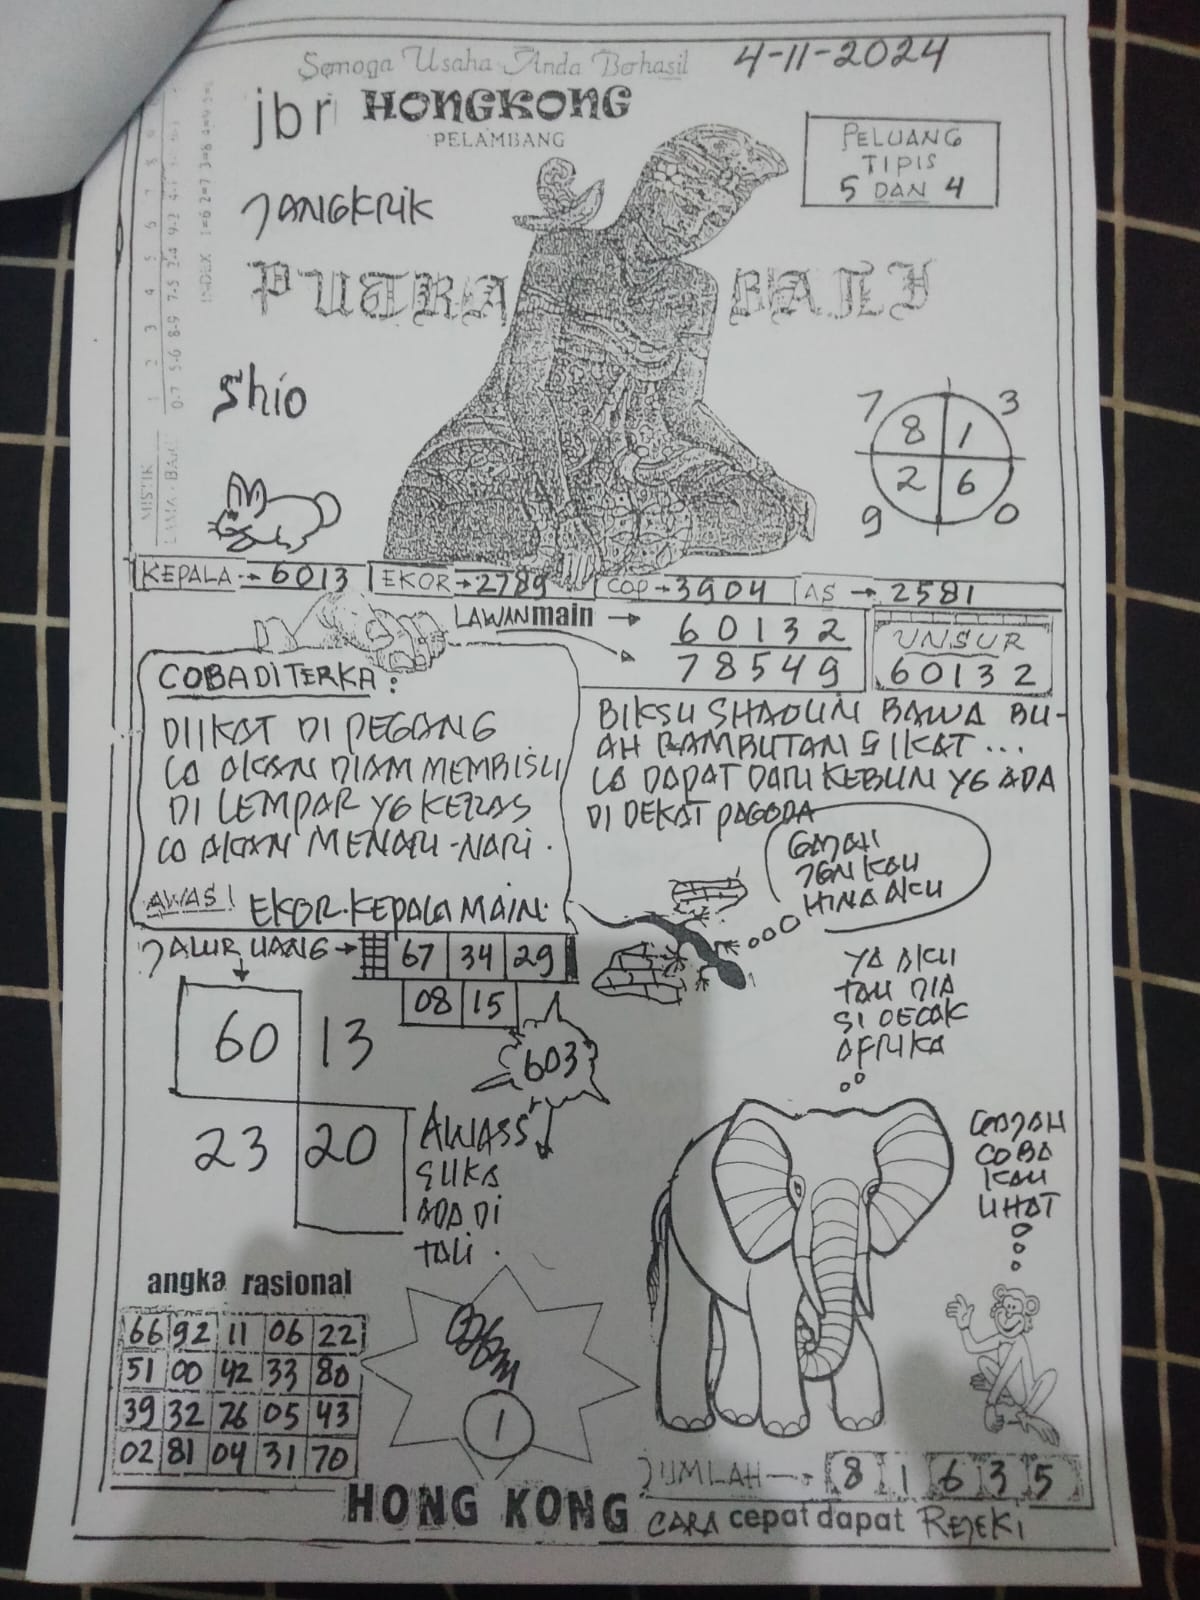 Semoga Usaha Anda Berhasil
4-11-2024
jbr HONGKONG
PELAMBANG
PELUANG
TIPIS
5 DAN 4
JANGKRIK
PUTRA BALI
Shio
7 3
8 1
2 6
9 0
MISTIK
INDEX 1=6 2=7 3=8 4=9 5=
KEPALA → 6013 EKOR → 2789 COP → 3904 AS → 2581
LAWAN main → 60132
78549
UNSUR
60132
COBA DITERKA :
DIIKAT DI PEGANG
IA AKAN DIAM MEMBISU
DI LEMPAR YG KERAS
IA AKAN MENARI-NARI.
AWAS! EKOR.KEPALA MAIN.
BIKSU SHAOLIN BAWA BU-
AH RAMBUTAN SIKAT ...
IA DAPAT DARI KEBUN YG ADA
DI DEKAT PAGODA
GAJAH
JGN KAU
HINA AKU
JALUR UANG → 67 34 29
08 15
60 13
23 20
603
AWASS
SUKA
ADA DI
TALI .
YA AKU
TAU DIA
SI CECAK
AFRIKA
GAJAH
COBA
KAU
LIHAT
angka rasional
66 92 11 06 22
51 00 42 33 80
39 32 76 05 43
02 81 04 31 70
1
JUMLAH → 8 1 6 3 5
HONG KONG CARA cepat dapat REJEKI